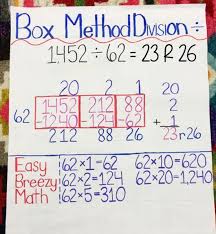 Box Method Division ÷
1452 ÷ 62 = 23 R 26
20 2 1 20
62 1452 212 88 2
-1240 -124 -62 + 1
212 88 26 23 r 26
Easy 62×1=62 62×10=620
Breezy 62×2=124 62×20=1,240
Math 62×5=310